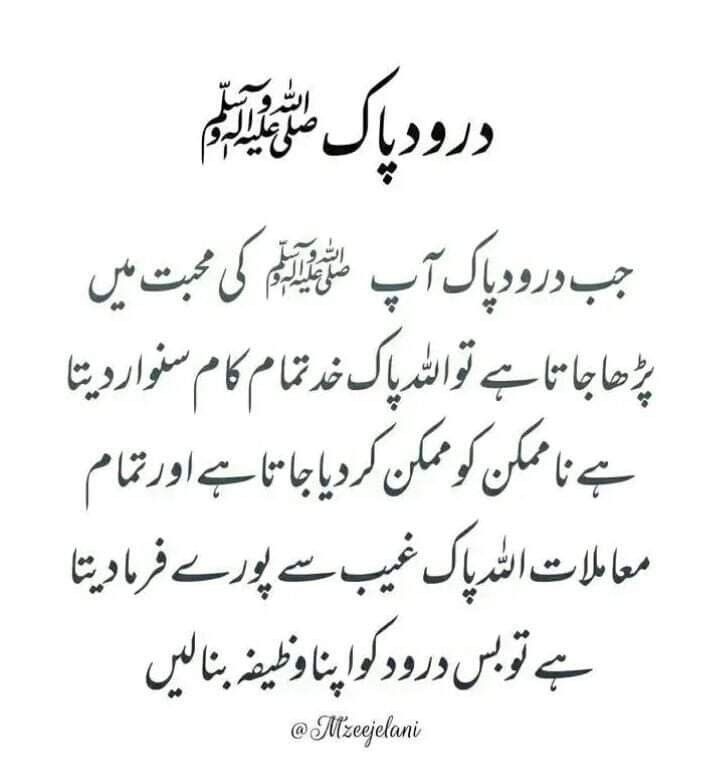 درود پاک ﷺ
جب درود پاک آپ ﷺ کی محبت میں
پڑھا جاتا ہے تو اللہ پاک خد تمام کام سنوار دیتا
ہے نا ممکن کو ممکن کر دیا جاتا ہے اور تمام
معاملات اللہ پاک غیب سے پورے فرما دیتا
ہے تو بس درود کو اپنا وظیفہ بنالیں
@Mzeejelani